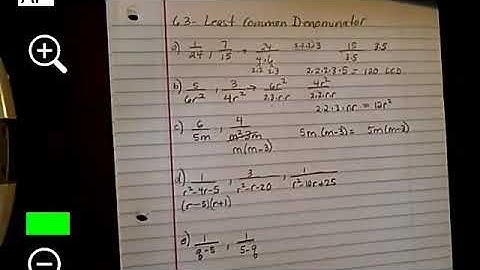 6.3- Least Common Denominator
a) 1/24, 7/15 = 24 2·2·2·3 15 3·5
4·6 3·5 2·2·2·3·5 = 120 LCD
2·2 2·3
b) 5/6r², 3/4r² → 6r²/2·3·r·r 4r²/2·2·r·r
2·2·3·r·r = 12r²
c) 6/5m, 4/m²-3m 5m·(m-3) = 5m(m-3)
m(m-3)
d) 1/r²-4r-5, 3/r²-r-20, 1/r²-10r+25
(r-5)(r+1)
e) 1/q-5, 1/5-q